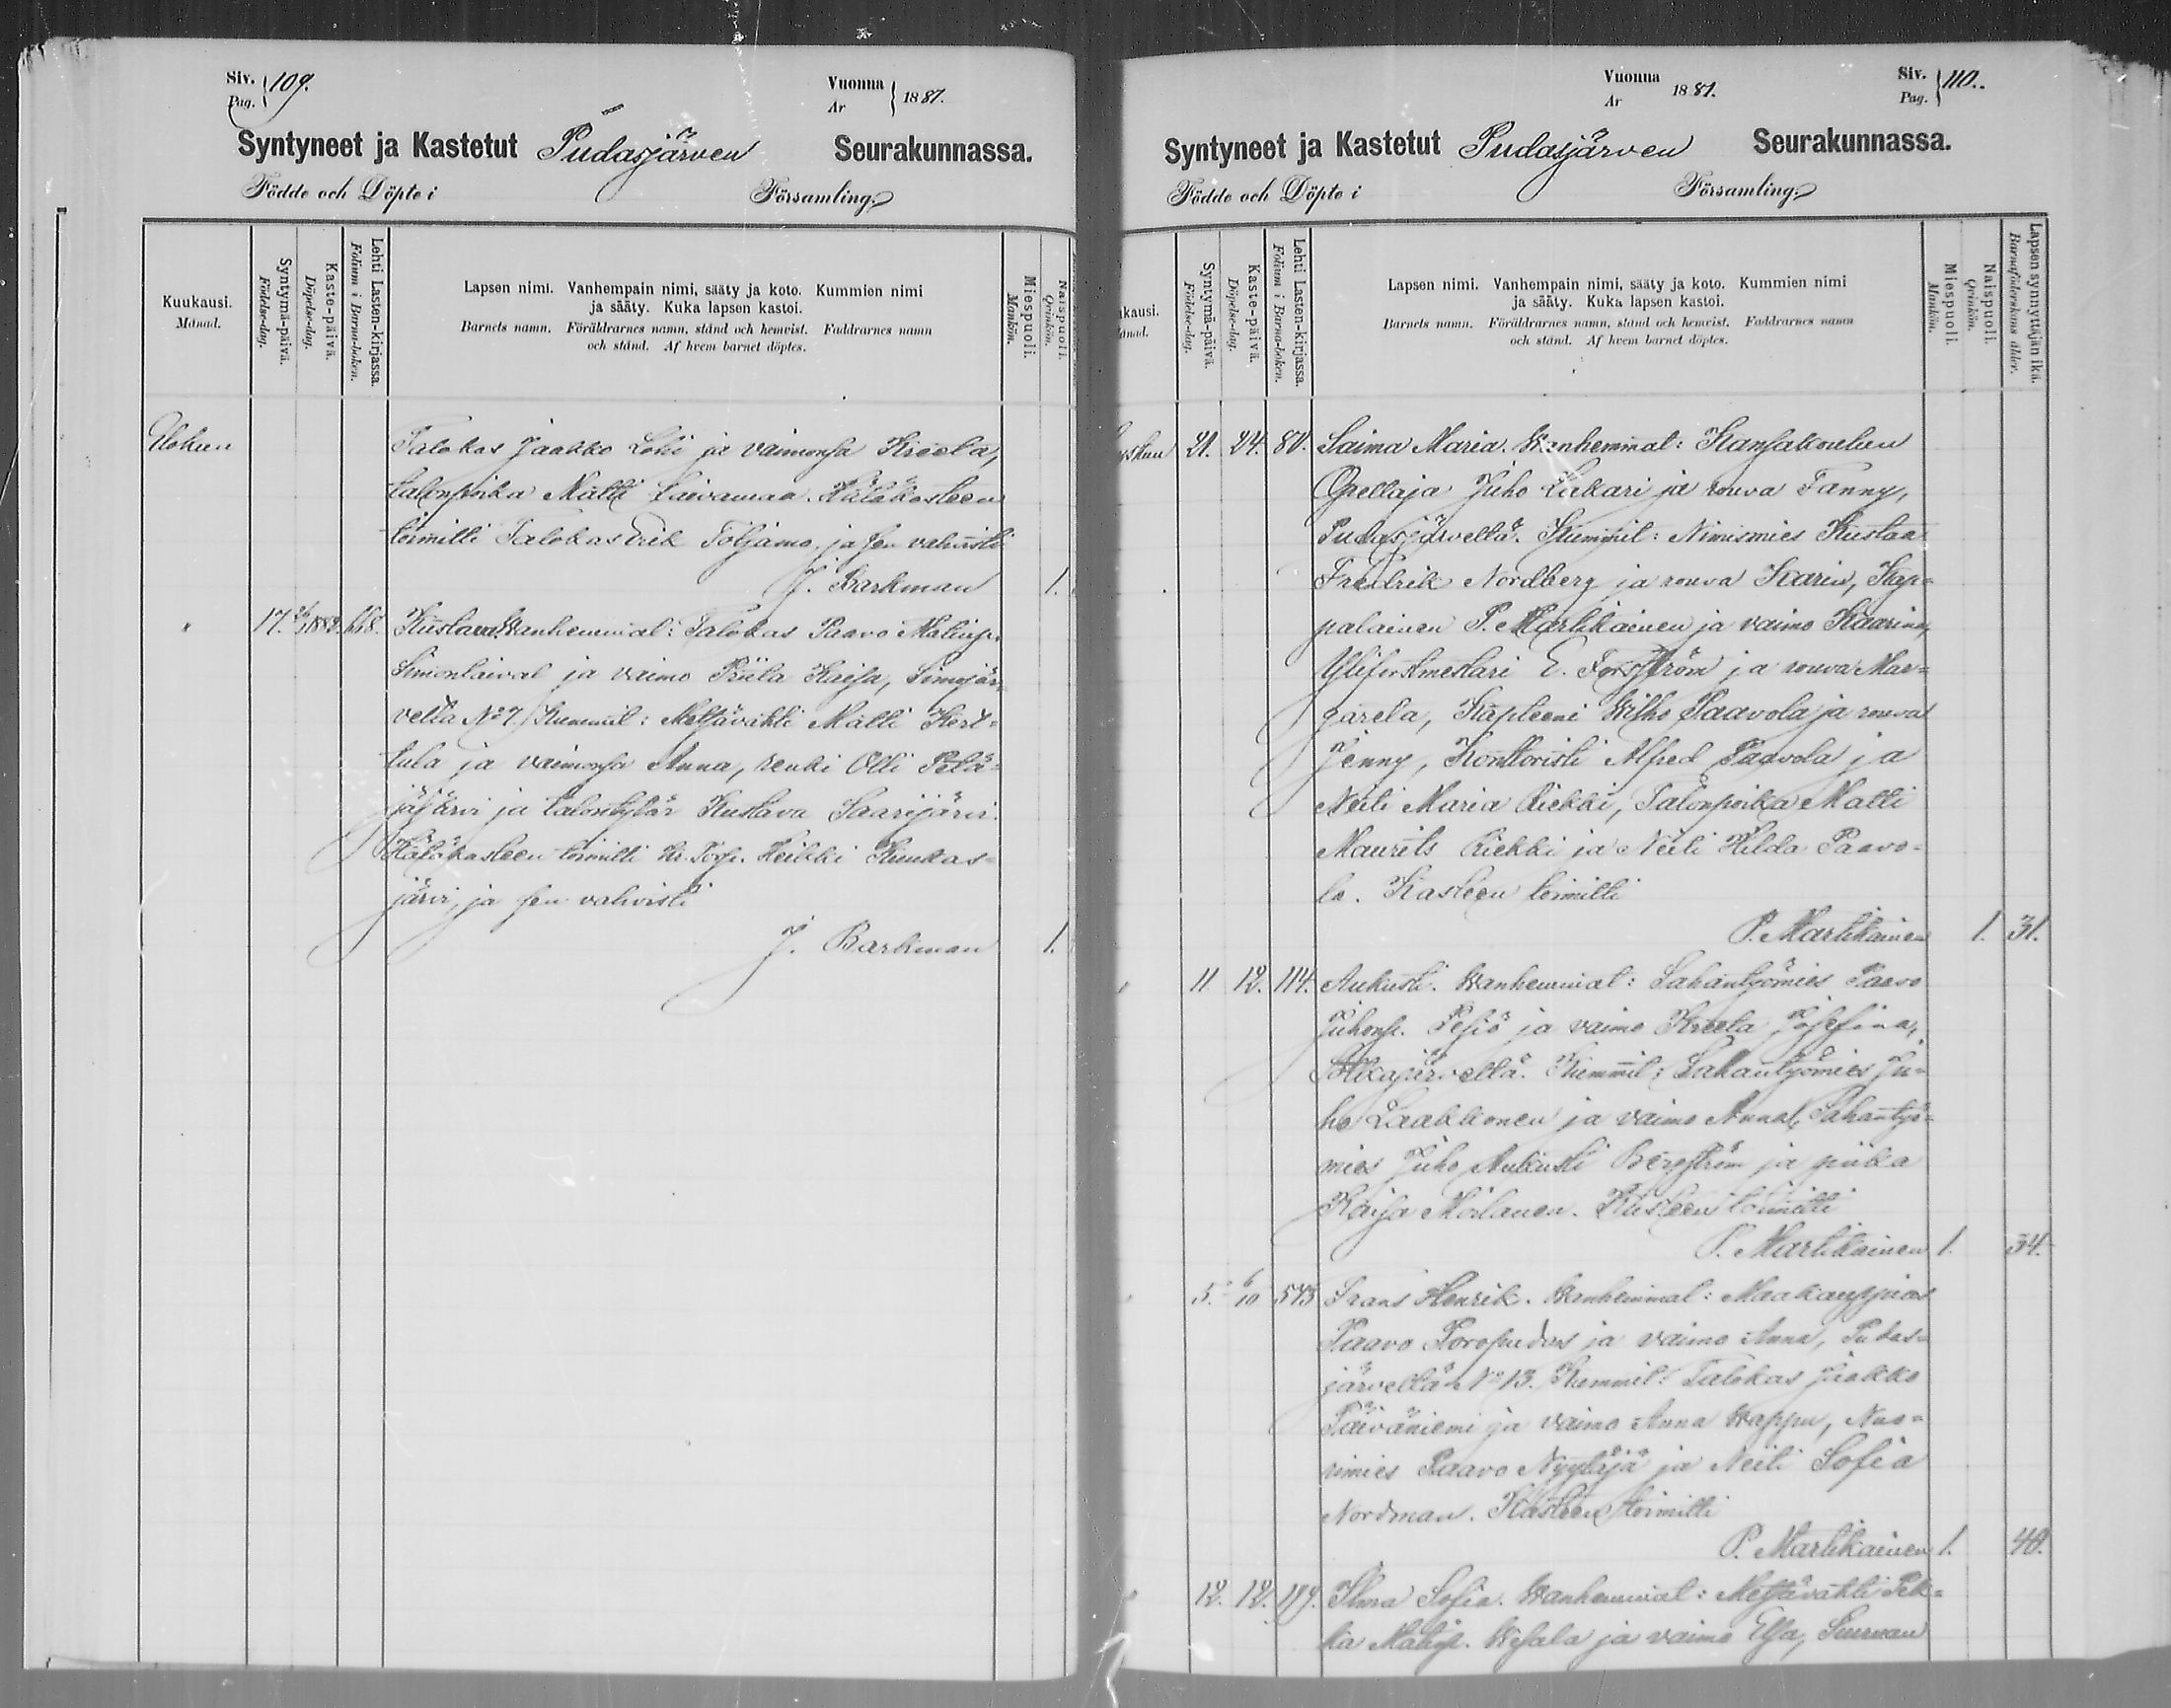 Siv. 109.
Pag.
Vuonna 1881.
Ar
Syntyneet ja Kastetut Pudasjärven Seurakunnassa.
Födde och Döpte i Församling.
Kuukausi.
Månad.
Syntymä-päivä.
Födelse-dag.
Kaste-päivä.
Döpelse-dag.
Lehti Lasten-kirjassa.
Folium i Barna-boken.
Lapsen nimi. Vanhempain nimi, sääty ja koto. Kummien nimi
ja sääty. Kuka lapsen kastoi.
Barnets namn. Föräldrarnes namn, stånd och hemvist. Faddrarnes namn
och stånd. Af hvem barnet döptes.
Miespuoli.
Mankön.
Naispuoli.
Qvinkön.
Elokuu
Talokas Jaakko Lohi ja vaimonsa Kreeta,
talonpoika Matti Taivamaa. Hätäkasteen
toimitti Talokas Erik Töljamo, ja sen vahvisti
J. Barkman 1.
" 17. 26/1 1882. 668. Kustava. Wanhemmat: Talokas Paavo Matinp.
Simontaival ja vaimo Priita Kaisa, Simojär-
veltä No 7. Kummit: Metsävahti Matti Kert-
tula ja vaimonsa Anna, renki Olli Petä-
jäjärvi ja talontytär Kustava Saarijärvi.
Hätäkasteen toimitti Heikki Kuukas-
järvi, ja sen vahvisti
J. Barkman 1.
Vuonna 1881.
Ar
Siv. 110.
Pag.
Syntyneet ja Kastetut Pudasjärven Seurakunnassa.
Födde och Döpte i Församling.
ukausi.
ånad.
Syntymä-päivä.
Födelse-dag.
Kaste-päivä.
Döpelse-dag.
Lehti Lasten-kirjassa.
Folium i Barna-boken.
Lapsen nimi. Vanhempain nimi, sääty ja koto. Kummien nimi
ja sääty. Kuka lapsen kastoi.
Barnets namn. Föräldrarnes namn, stånd och hemvist. Faddrarnes namn
och stånd. Af hvem barnet döptes.
Miespuoli.
Mankön.
Naispuoli.
Qvinkön.
Lapsen synnyttäjän ikä.
Barnaföderskans ålder.
yskuu 21. 24. 80. Saima Maria. Wanhemmat: Kansakoulun
Opettaja Juho Lakari ja rouva Fanny,
Pudasjärvellä. Kummit: Nimismies Kustaa
Fredrik Nordberg ja rouva Karin, Kap-
palainen P. Martikainen ja vaimo Kaarina,
Yliforstmestari E. Forsström ja rouva Mar-
gareta, Kapteeni Wilho Paavola ja rouva
Jenny, Konttoristi Alfred Paavola ja
Neiti Maria Riekki, Talonpoika Matti
Maurits Riekki ja Neiti Hilda Paavo-
la. Kasteen toimitti
P. Martikainen 1. 31.
11 12. 114. Aukusti. Wanhemmat: Sahantyömies Paavo
Juhonp. Pesiö ja vaimo Kreeta Josefina,
Kummit: Sahantyömies Ju-
ho Laakkonen ja vaimo Anna, Sahantyö-
mies Juho Aukusti Bergström ja piika
Kaisa Moilanen. Kasteen toimitti
P. Martikainen 1. 34.
5. 6/10 543 Frans Henrik. Wanhemmat: Maakauppias
Paavo Koropudas ja vaimo Anna, Pudas-
järvellä No 13. Kummit: Talokas Jaakko
Päiväniemi ja vaimo Anna Wappu, Nuo-
rimies Paavo Nyyläjä ja Neiti Sofia
Nordman. Kasteen toimitti
P. Martikainen 1. 40.
12. 12. 119. Ilma Sofia. Wanhemmat: Metsävahti Pek-
ka Matinp. Wesala ja vaimo Elsa, Siuruan